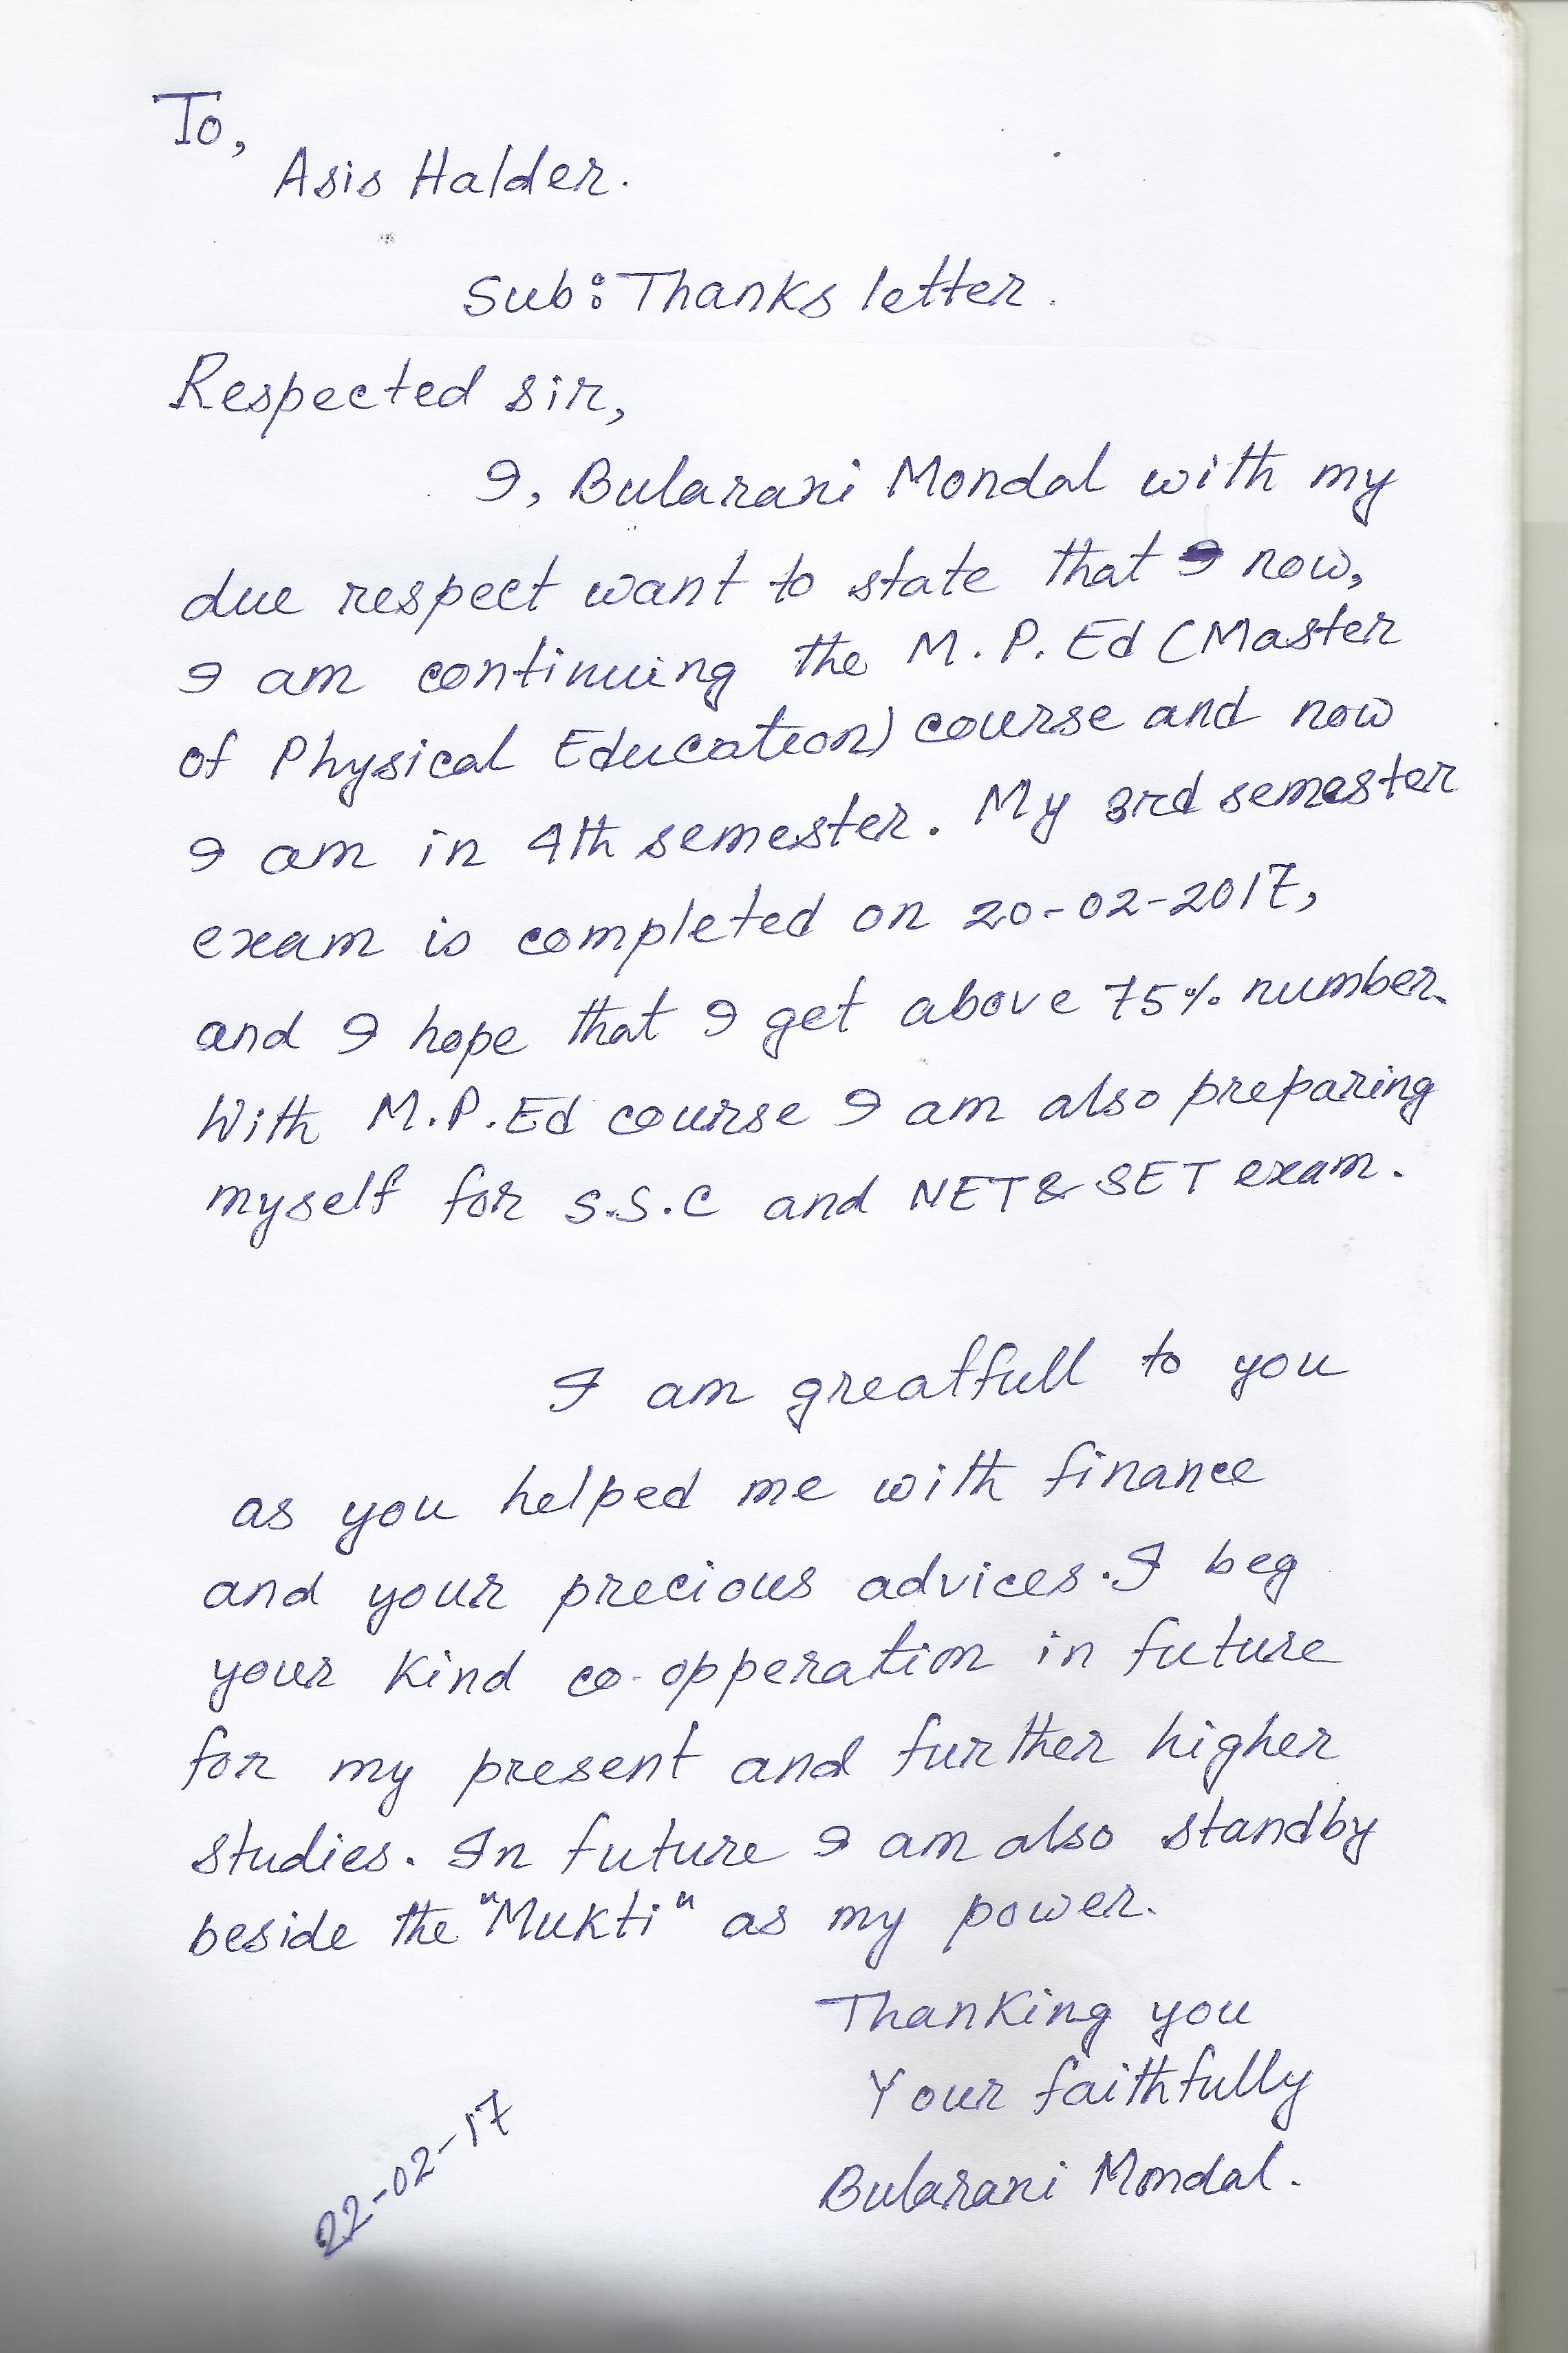 To,
Asis Halder.
Sub: Thanks letter.
Respected sir,
I, Bularani Mondal with my
due respect want to state that now,
I am continuing the M.P.Ed (Master
of Physical Education) course and now
I am in 4th semester. My 3rd semester
exam is completed on 20-02-2017,
and I hope that I get above 75% number.
With M.P.Ed course I am also preparing
myself for S.S.C and NET & SET exam.
I am greatfull to you
as you helped me with finance
and your precious advices. I beg
your kind co-opperation in future
for my present and further higher
studies. In future I am also standby
beside the "Mukti" as my power.
Thanking you
Your faithfully
Bularani Mondal.
22-02-17